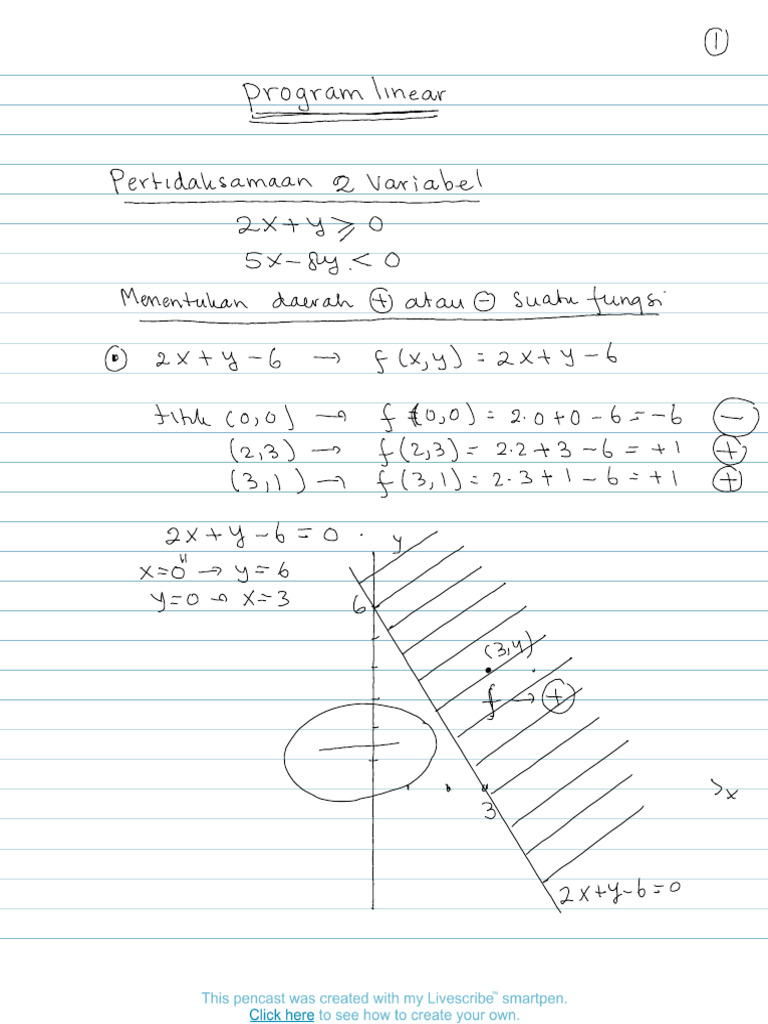 ①
Program linear
Pertidaksamaan 2 Variabel
2x + y ⩾ 0
5x - 8y < 0
Menentukan daerah ⊕ atau ⊖ suatu fungsi
⊙ 2x + y - 6 → f(x,y) = 2x + y - 6
titik (0,0) → f(0,0) = 2·0 + 0 - 6 = -6 ⊖
(2,3) → f(2,3) = 2·2 + 3 - 6 = +1 ⊕
(3,1) → f(3,1) = 2·3 + 1 - 6 = +1 ⊕
2x + y - 6 = 0
x=0 → y=6
y=0 → x=3
y
6
(3,4)
f → ⊕
−
3
x
2x+y-6=0
This pencast was created with my Livescribe™ smartpen.
Click here to see how to create your own.